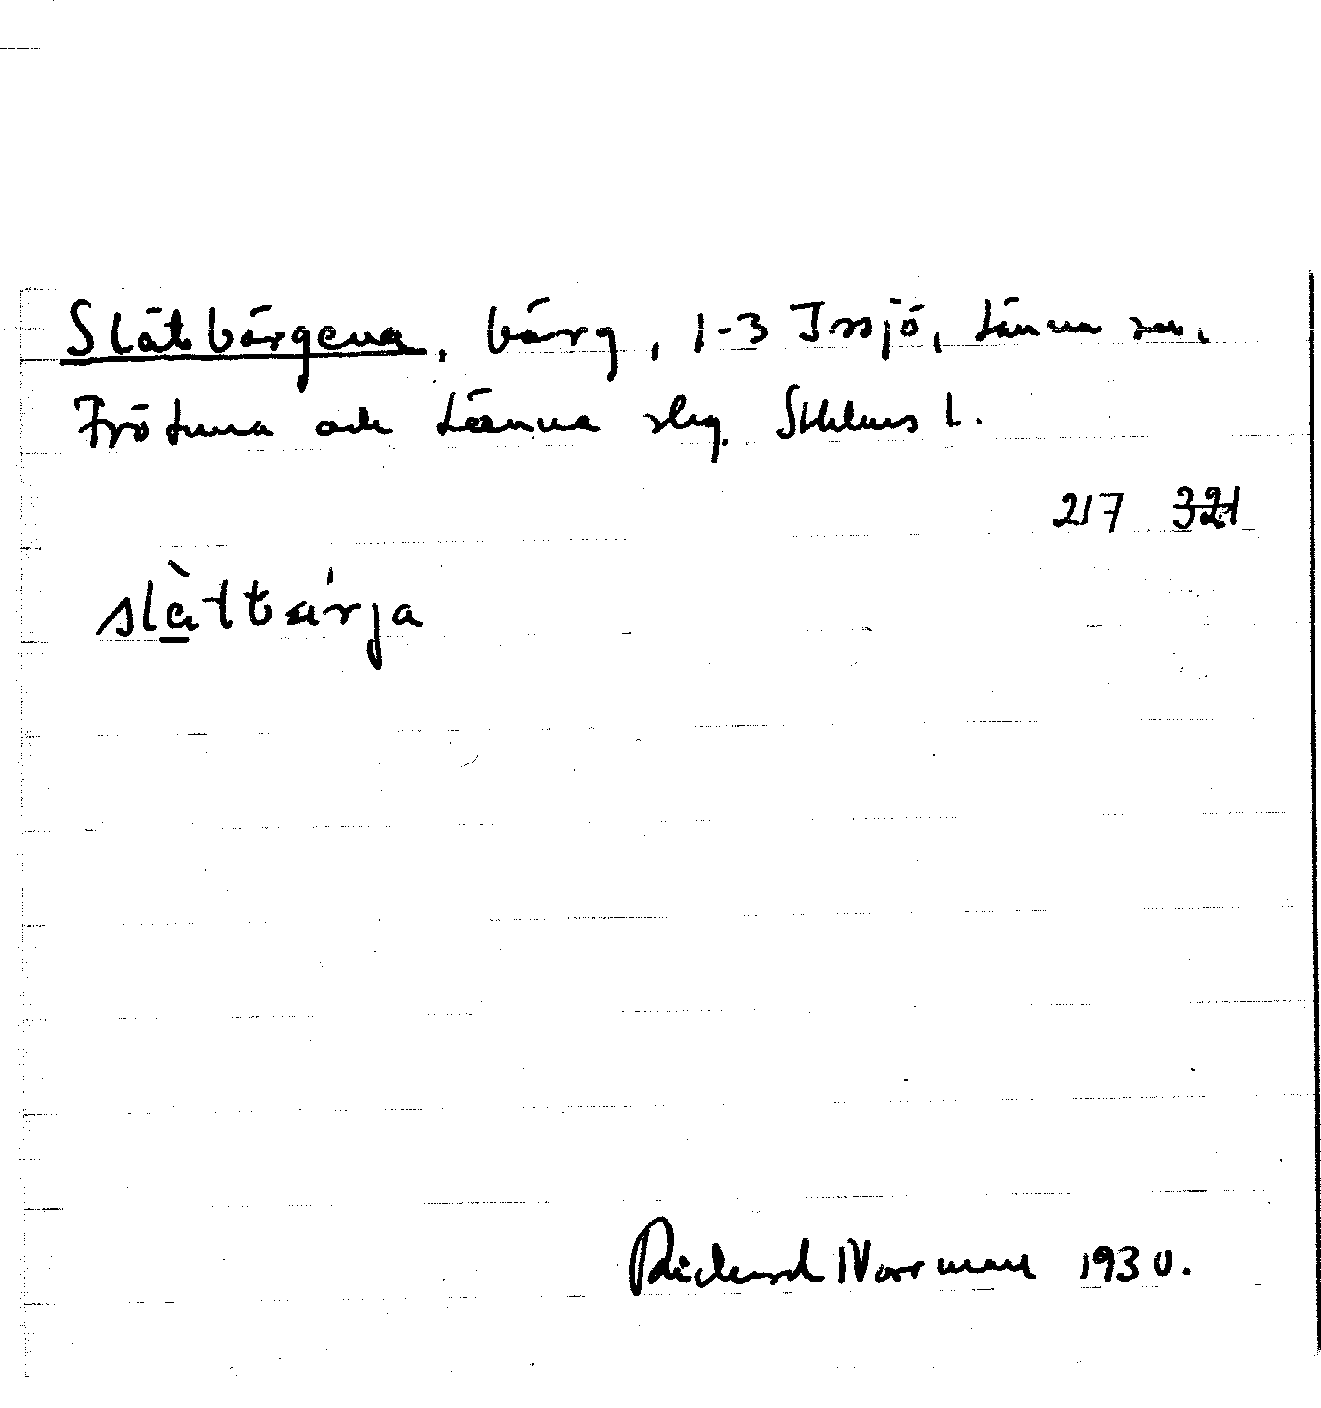 Slätbärgena, bärg, 1-3 Issjö, Länna sn.
Frötuna och Länna slg. Sthlms l.
217 321
slättbärja
Richard Norrman 1930.